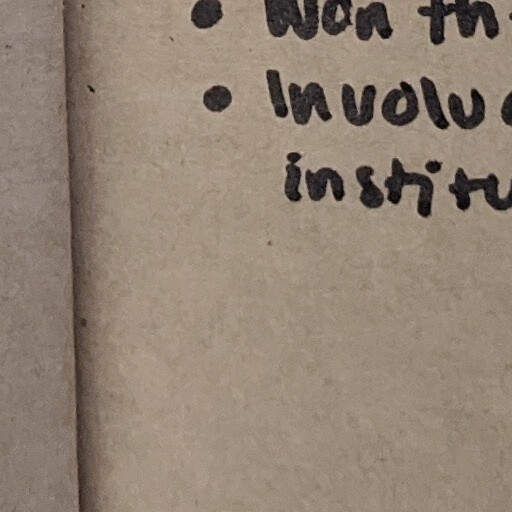 • Won th
• Involv
institu